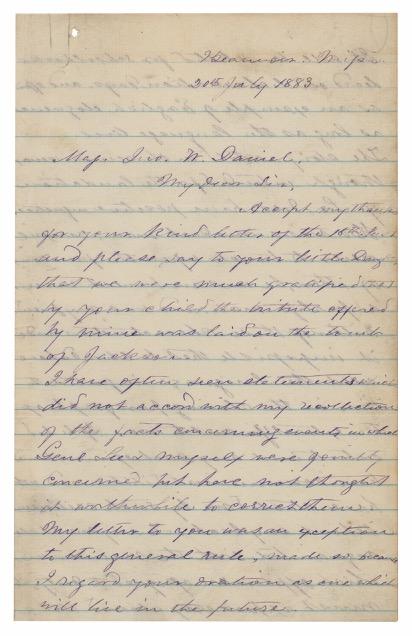 Beauvoir. Missi.
20th July 1883
Maj. Jno. W. Daniel,
My Dear Sir,
Accept my thanks
for your kind letter of the 16th Inst
and please say to your little Daug
that we were much gratified that
by your child the tribute offered
by mine was laid on the tomb
of Jackson.
I have often seen statements which
did not accord with my recollection
of the facts concerning events in which
Genl Lee & myself were jointly
concerned but have not thought
it worthwhile to correct them.
My letter to you was an exception
to this general rule, made so because
I regard your oration as one which
will live in the future.